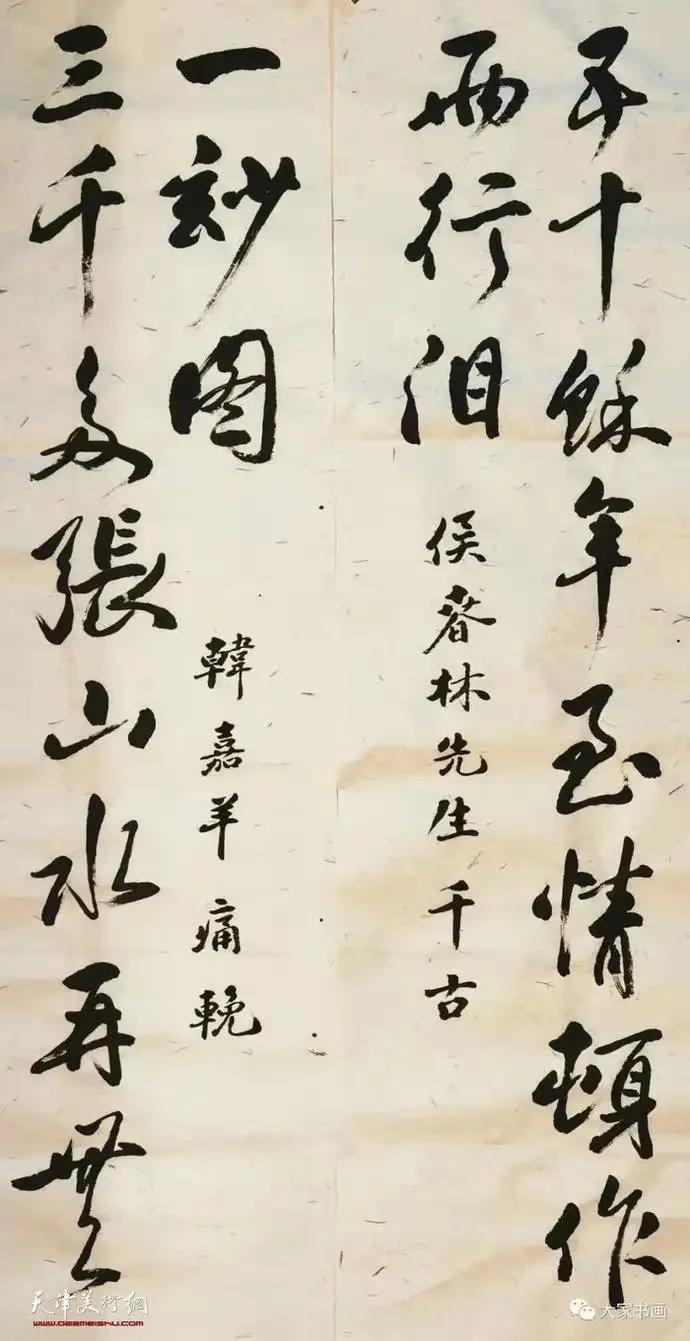 五十餘年至情頓作
兩行泪
侯春林先生千古
三千多張山水再無
一玅图
韓嘉羊痛輓
天津美術網
www.022meishu.com
大家书画